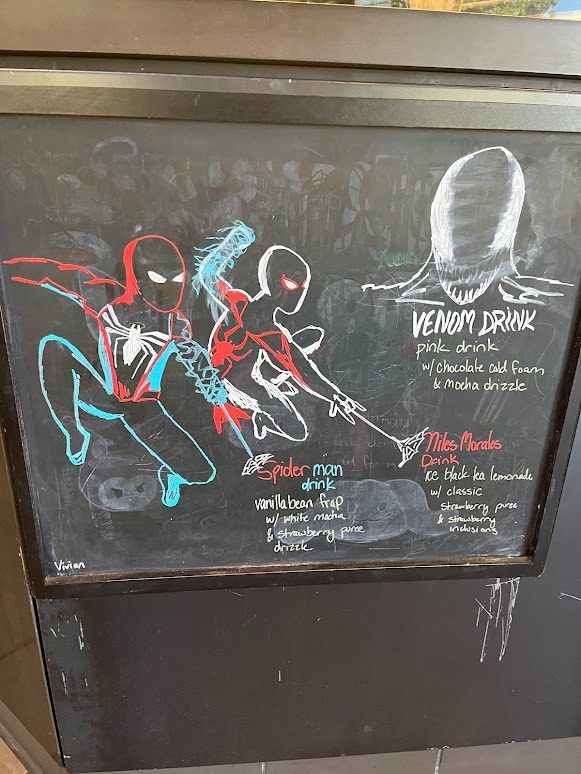 VENOM DRINK
pink drink
w/ chocolate cold foam
& mocha drizzle
Spider man
drink
vanilla bean frap
w/ white mocha
& strawberry puree
drizzle
Miles Morales
Drink
ice black tea lemonade
w/ classic
strawberry puree
& strawberry
inclusions
Vivian